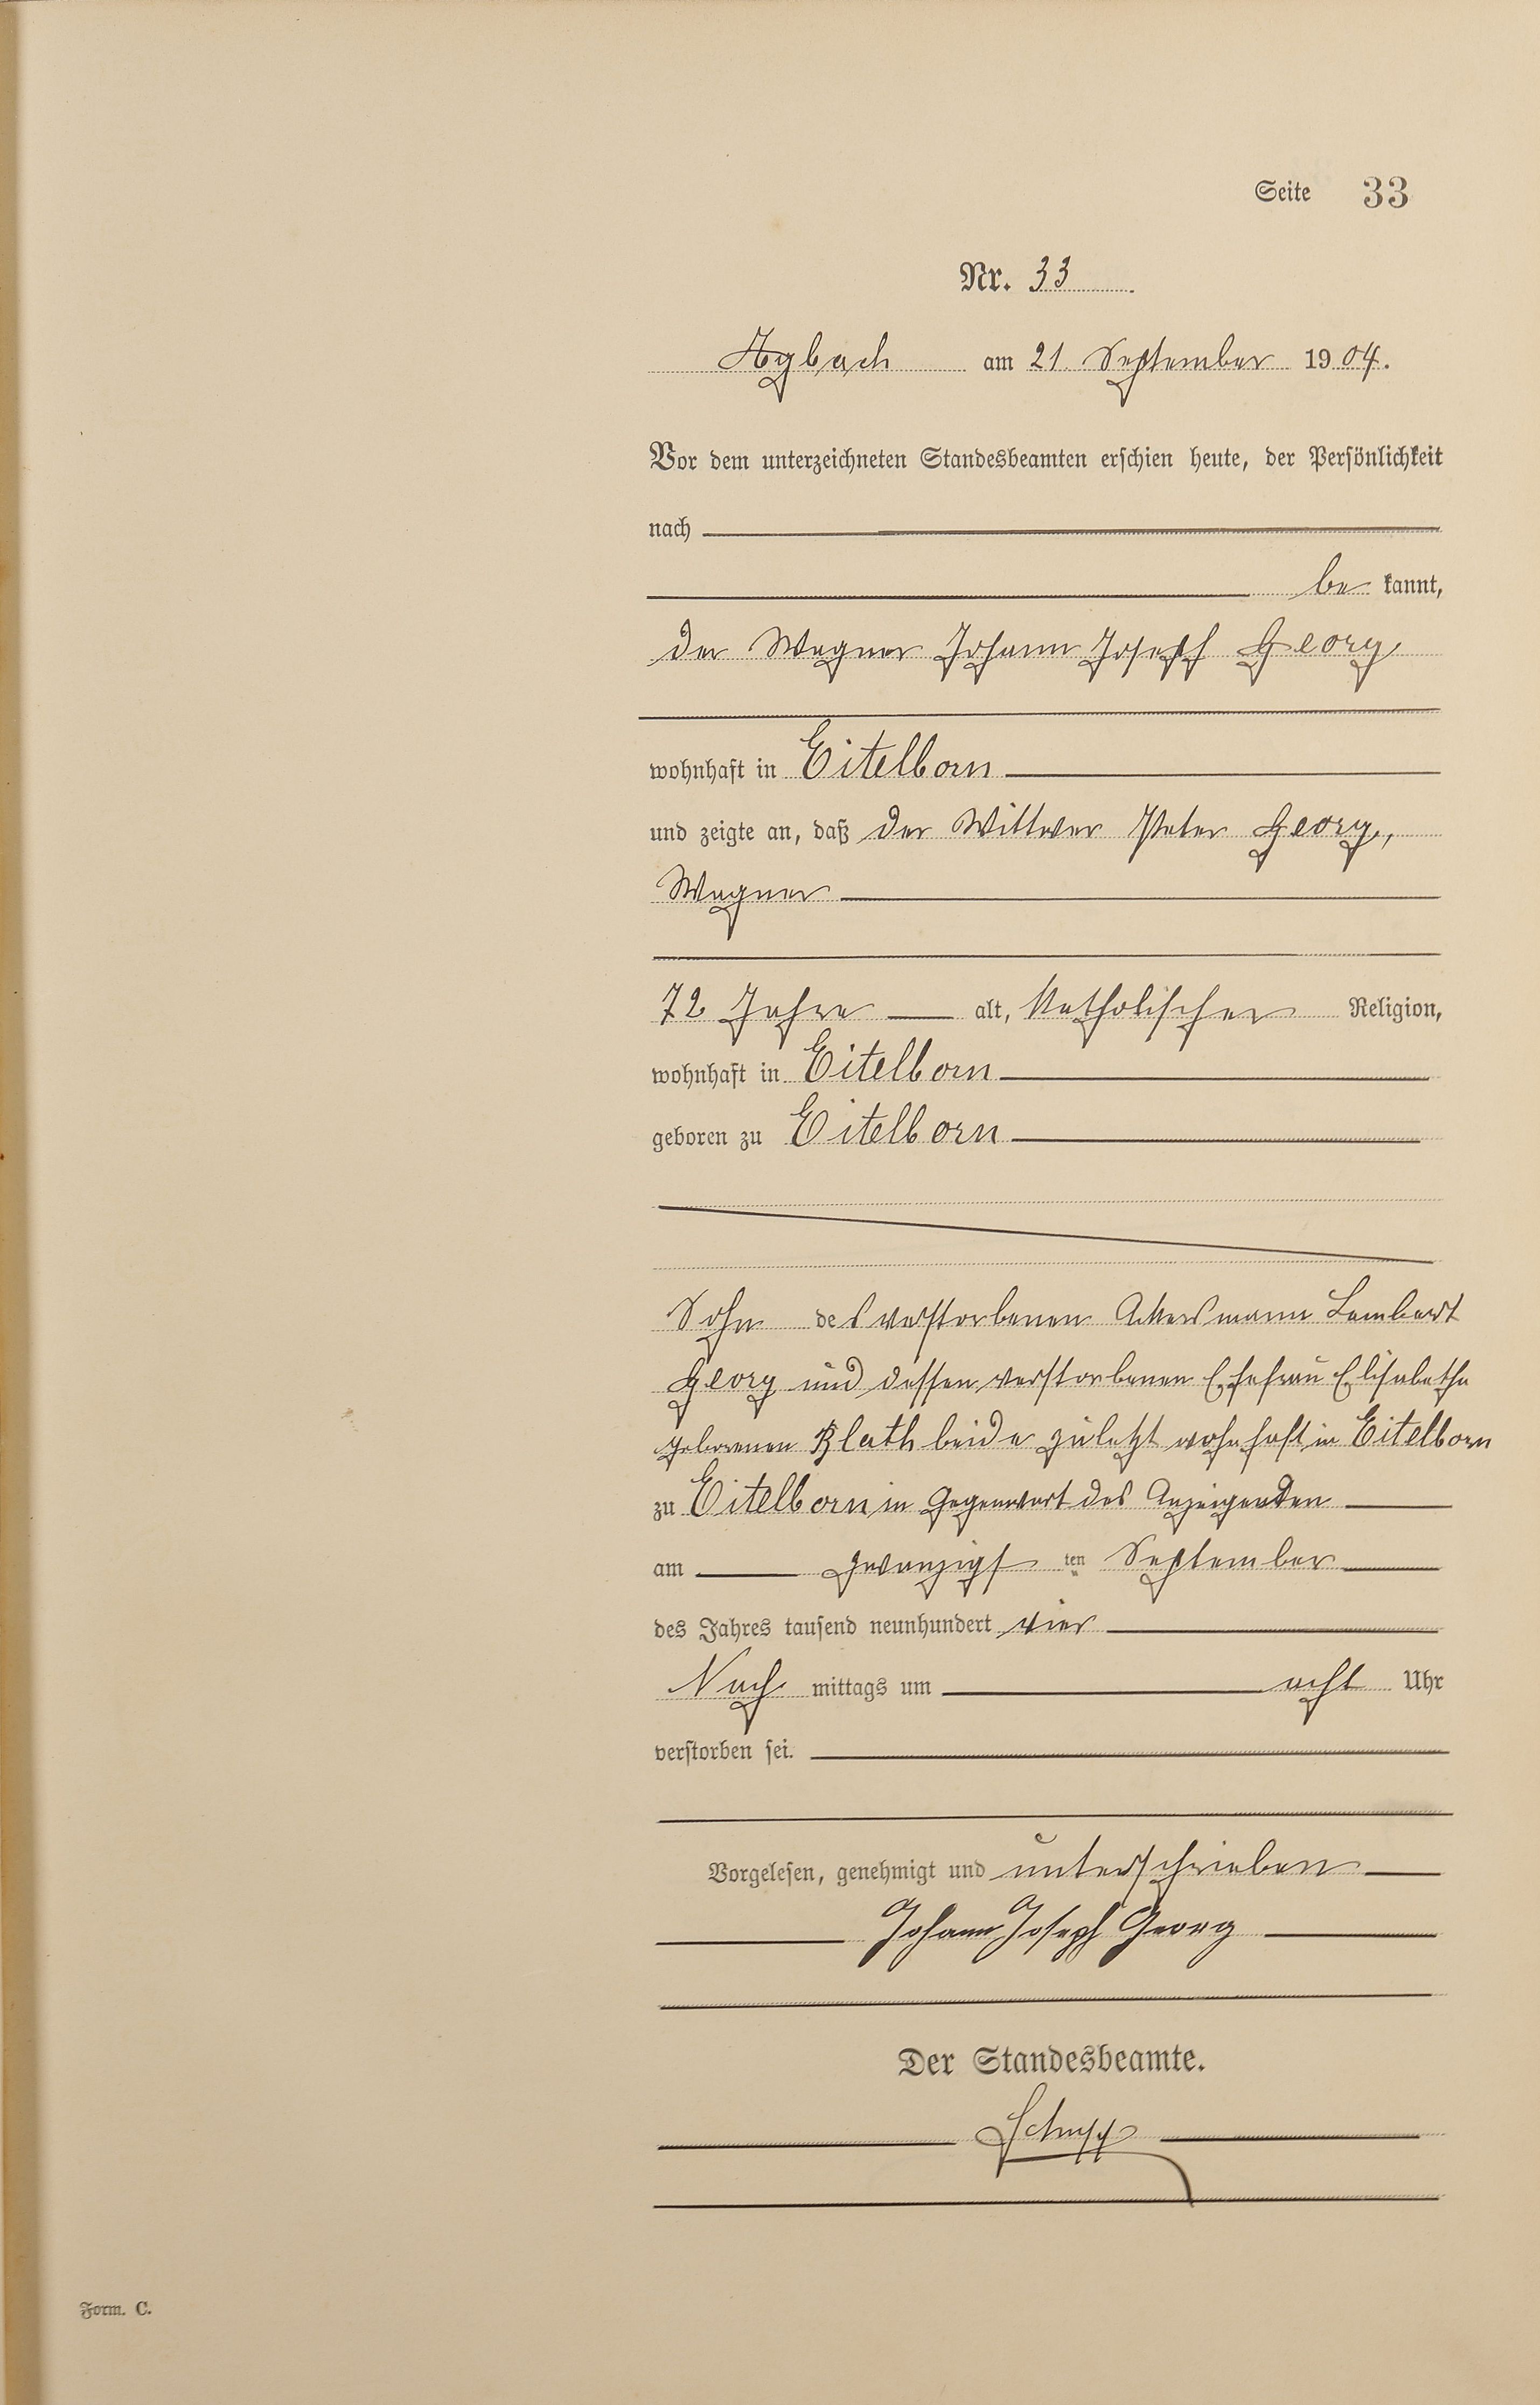 Seite 33
Nr. 33
Arzbach am 21. September 1904.
Vor dem unterzeichneten Standesbeamten erschien heute, der Persönlichkeit
nach
be kannt,
der Wagner Johann Joseph Georg
wohnhaft in Eitelborn
und zeigte an, daß der Wittwer Peter Georg,
Wagner
72 Jahre alt, katholischer Religion,
wohnhaft in Eitelborn
geboren zu Eitelborn
Sohn des verstorbenen Ackersmann Lambert
Georg und dessen verstorbenen Ehefrau Elisabetha
geborenen Blath beide zuletzt wohnhaft in Eitelborn
zu Eitelborn in Gegenwart des Anzeigenden
am zwanzigsten September
des Jahres tausend neunhundert vier
Nach mittags um acht Uhr
verstorben sei.
Vorgelesen, genehmigt und unterschrieben
Johann Joseph Georg
Der Standesbeamte.
Schupp
Form. C.